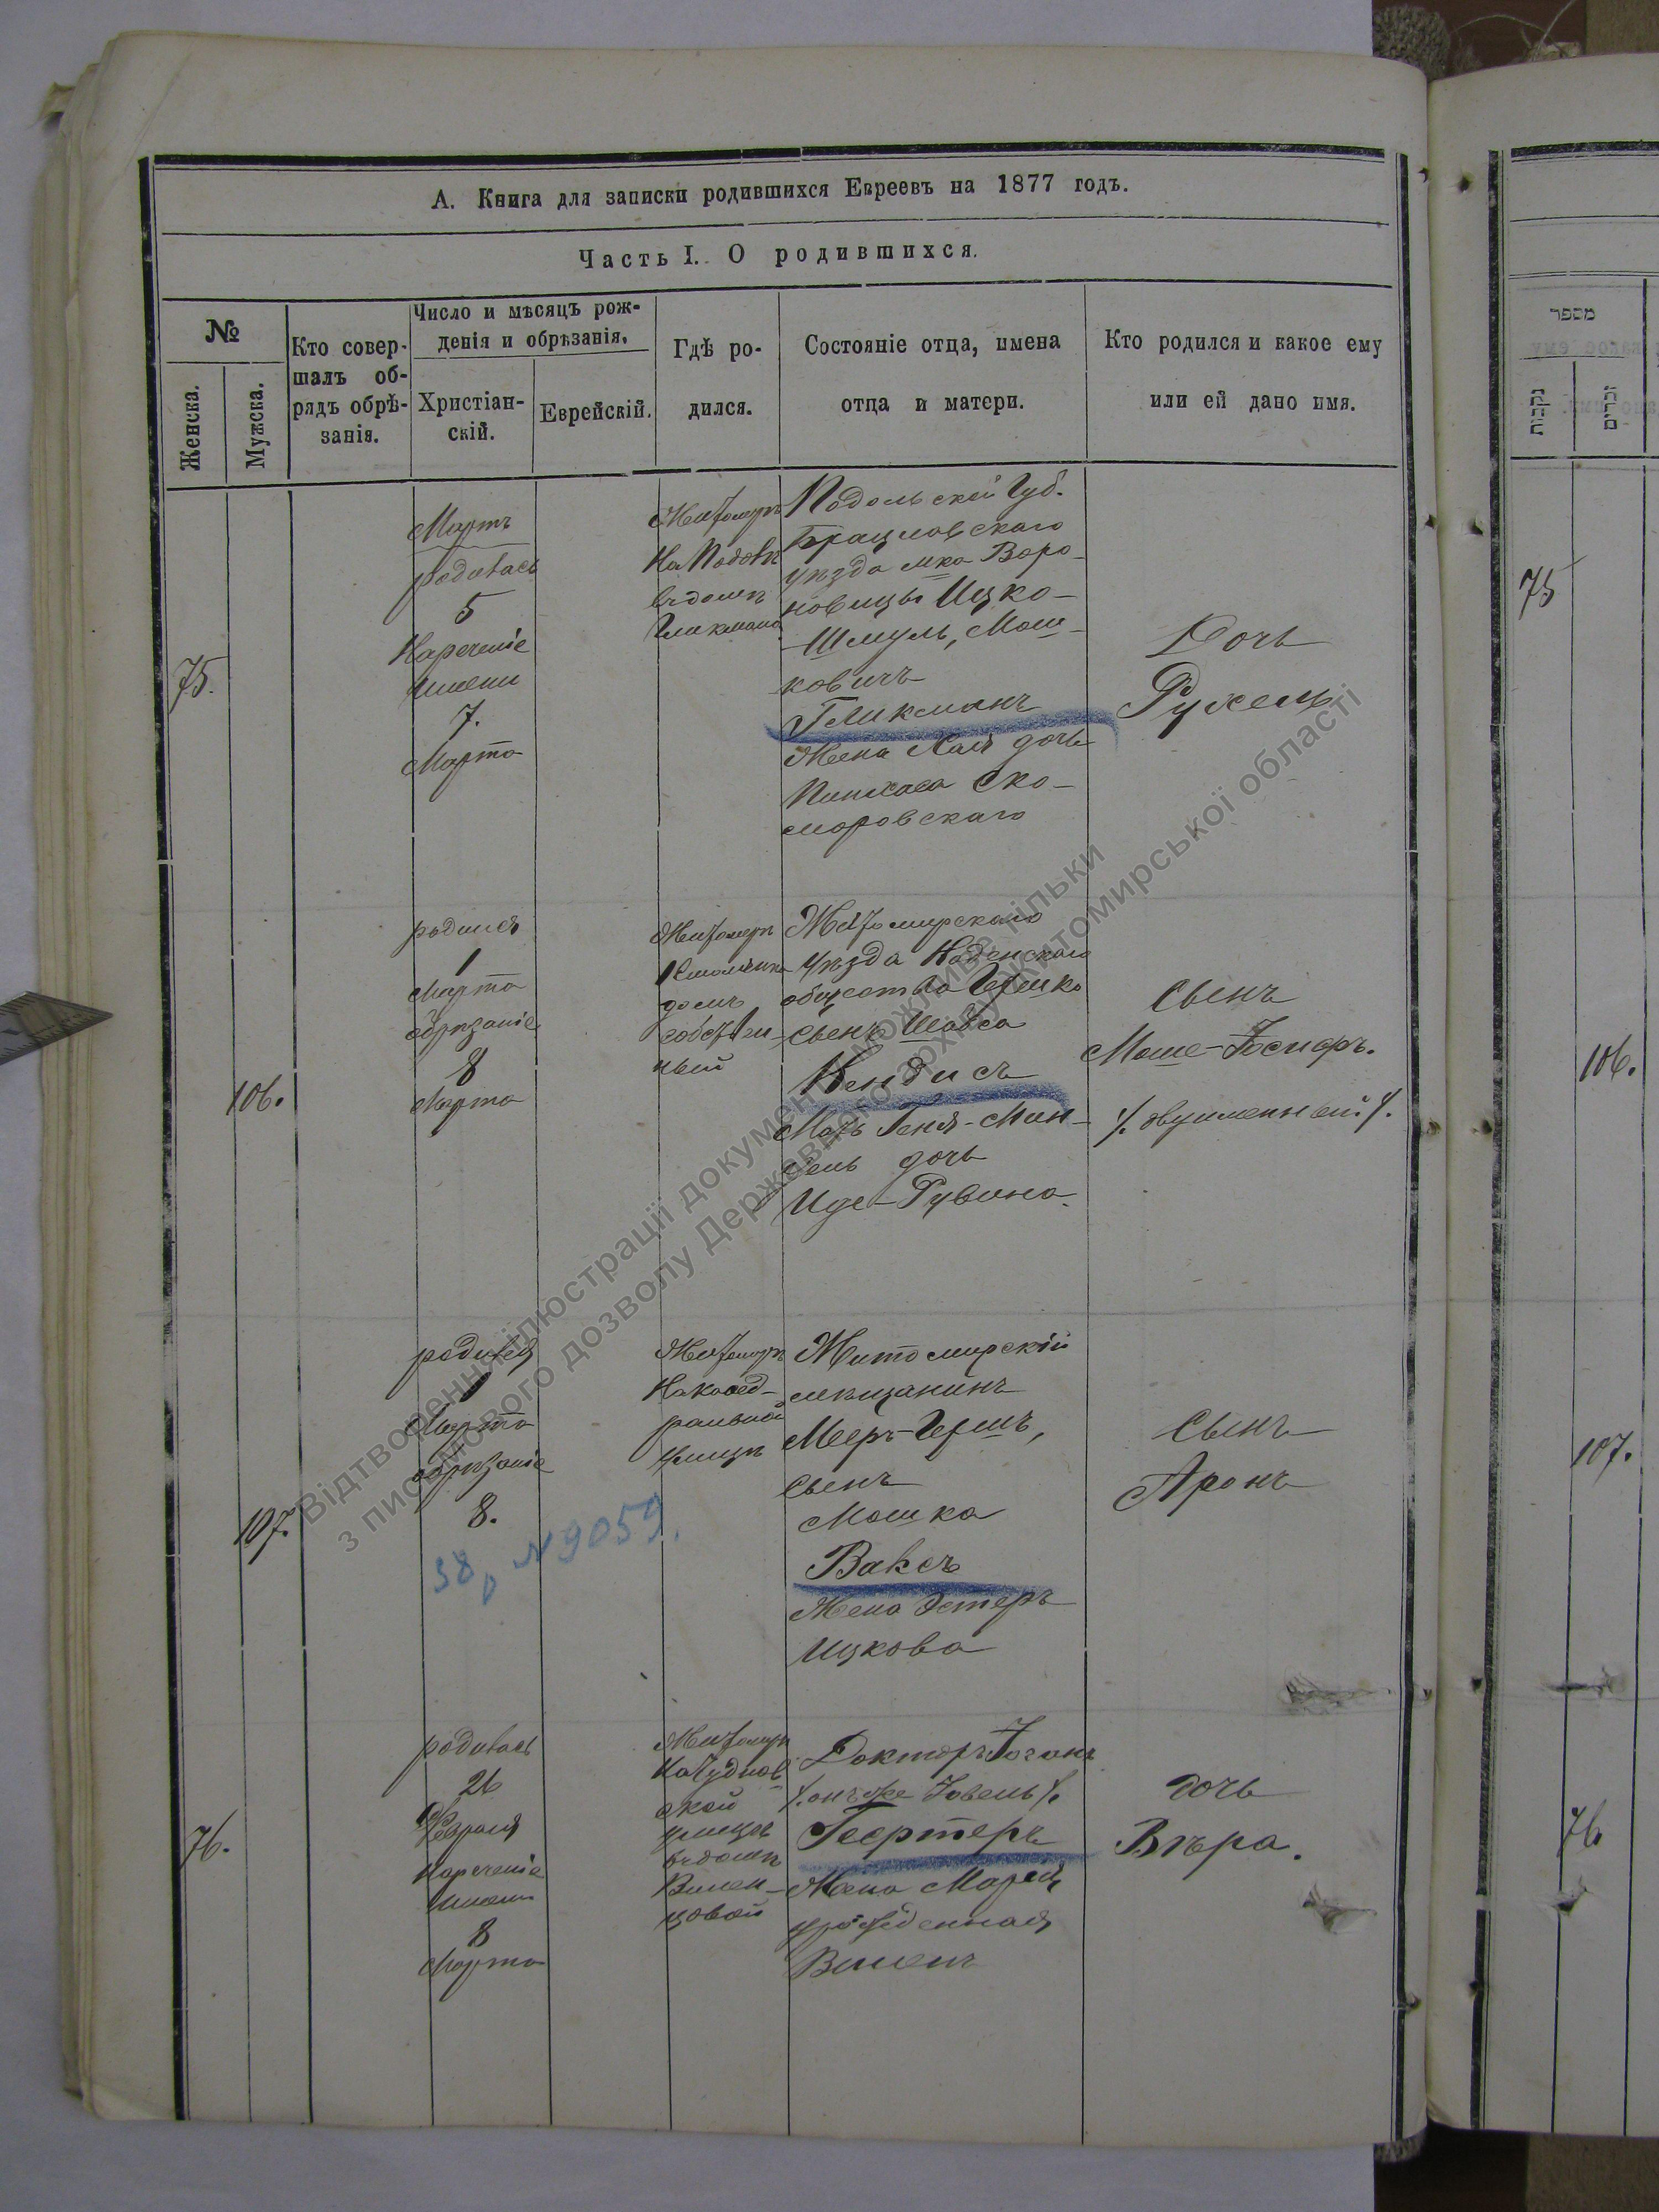 А. Книга для записки родившихся Евреевъ на 1877 годъ.
Часть I. О родившихся.
№
Женска.
Мужска.
Кто совер-
шалъ об-
рядъ обрѣ-
занія.
Число и мѣсяцъ рож-
денія и обрѣзанія.
Христіан-
скій.
Еврейскій.
Гдѣ ро-
дился.
Состояніе отца, имена
отца и матери.
Кто родился и какое ему
или ей дано имя.
75.
Мартъ
родилась
5
Нареченіе
имени
7.
Марта
Житомиръ
На Подолѣ
въ домѣ
Гликмана
Подольской Губ.
Брацлавскаго
уѣзда мка Воро-
новицы Ицко-
Шмуль, Мош-
ковичъ
Гликманъ
Жена Хая дочь
Пинхаса Ско-
моровскаго
Дочь
Рухель
106.
родился
1
Марта
обрѣзаніе
8
Марта
Житомиръ
домъ
собствен-
ный
Житомирскаго
уѣзда
общества Гершко
сынъ Шавса
Кендисъ
Мать Геня-Мин-
дель дочь
Иде-Рувина.
Сынъ
Моше-Іосифъ.
/. двуименный /.
107.
родился
1
Марта
обрѣзаніе
8.
38, N 9059.
Житомиръ
На каѳед-
ральной
улицѣ
Житомирскій
мѣщанинъ
Мееръ-Гершъ,
сынъ
Мошка
Ваксъ
Жена Эстеръ
Ицкова
Сынъ
Аронъ
76.
родилась
26
Февраля
нареченіе
имени
8
Марта
Житомиръ
На Чуднов
ской
улицѣ
въ домѣ
Вилен-
цовой
Докторъ Іоганъ
/. онъ же Іовель /.
Геертеръ
Жена Марія
урожденная
Виленъ
дочь
Вѣра.
מספר
נקבות
זכרים
75
106.
107.
76
Відтворення ілюстрації документу можливе тільки
з письмового дозволу Державного архіву Житомирської області